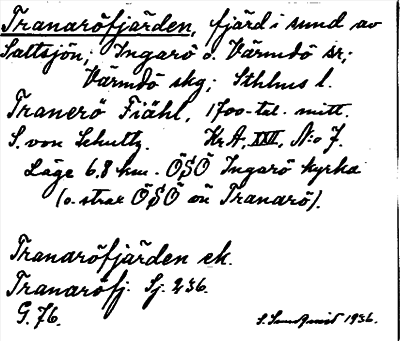 Tranaröfjärden, fjärd i sund av
Saltsjön; Ingarö o. Värmdö sr;
Värmdö skg; Sthlms l.
Tranerö Fiähl, 1700-tal. mitt.
S. von Schultz. Kr A. XXVI, N:o 7.
Läge 6,8 km. ÖSÖ Ingarö kyrka
(o. strax ÖSÖ on Tranarö).
Tranaröfjärden ek.
Tranaröfj. Sj. 236.
G. 76.
S. Sundqvist 1936.